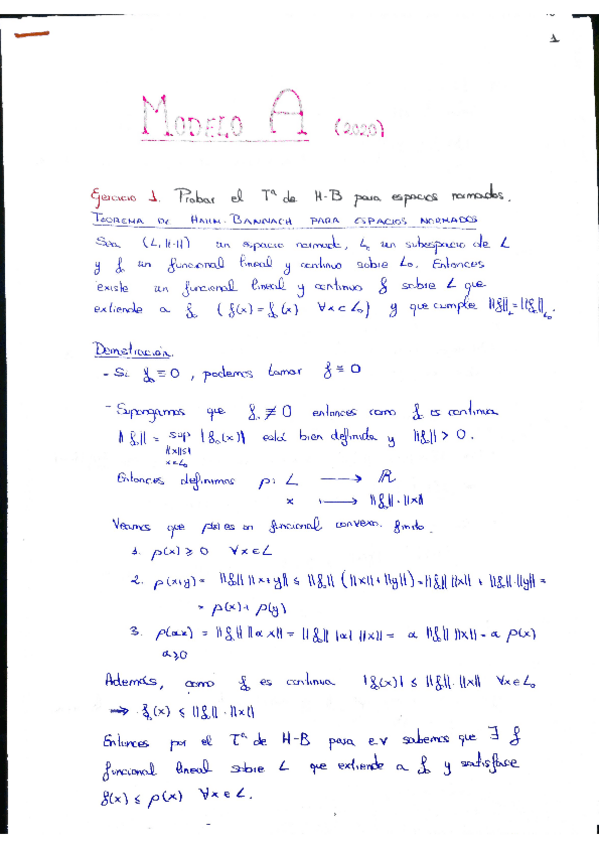 1
MODELO A (2020)
Ejercicio 1. Probar el Tª de H-B para espacios normados.
TEOREMA DE HAHN-BANNACH PARA ESPACIOS NORMADOS
Sea (L, ||·||) un espacio normado, L₀ un subespacio de L
y f₀ un funcional lineal y continuo sobre L₀. Entonces
existe un funcional lineal y continuo f sobre L que
extiende a f₀ (f(x) = f₀(x) ∀x ∈ L₀) y que cumple ||f||_L = ||f₀||_L₀.
Demostración.
- Si f₀ ≡ 0, podemos tomar f ≡ 0
- Supongamos que f₀ ≢ 0 entonces como f₀ es continua
||f₀|| = sup |f₀(x)| está bien definida y ||f₀|| > 0.
||x||≤1
x∈L₀
Entonces definimos p: L ⟶ ℝ
x ⟼ ||f₀||·||x||
Veamos que p(x) es un funcional convexo finito.
1. p(x) ≥ 0 ∀x∈L
2. p(x+y) = ||f₀|| ||x+y|| ≤ ||f₀|| (||x||+||y||) = ||f₀|| ||x|| + ||f₀||·||y|| =
= p(x) + p(y)
3. p(αx) = ||f₀|| ||αx|| = ||f₀|| |α| ||x|| = α ||f₀|| ||x|| = α p(x)
α≥0
Además, como f₀ es continua |f₀(x)| ≤ ||f₀||·||x|| ∀x∈L₀
⟹ f₀(x) ≤ ||f₀||·||x||
Entonces por el Tª de H-B para e.v sabemos que ∃ f
funcional lineal sobre L que extiende a f₀ y satisface
f(x) ≤ p(x) ∀x∈L.